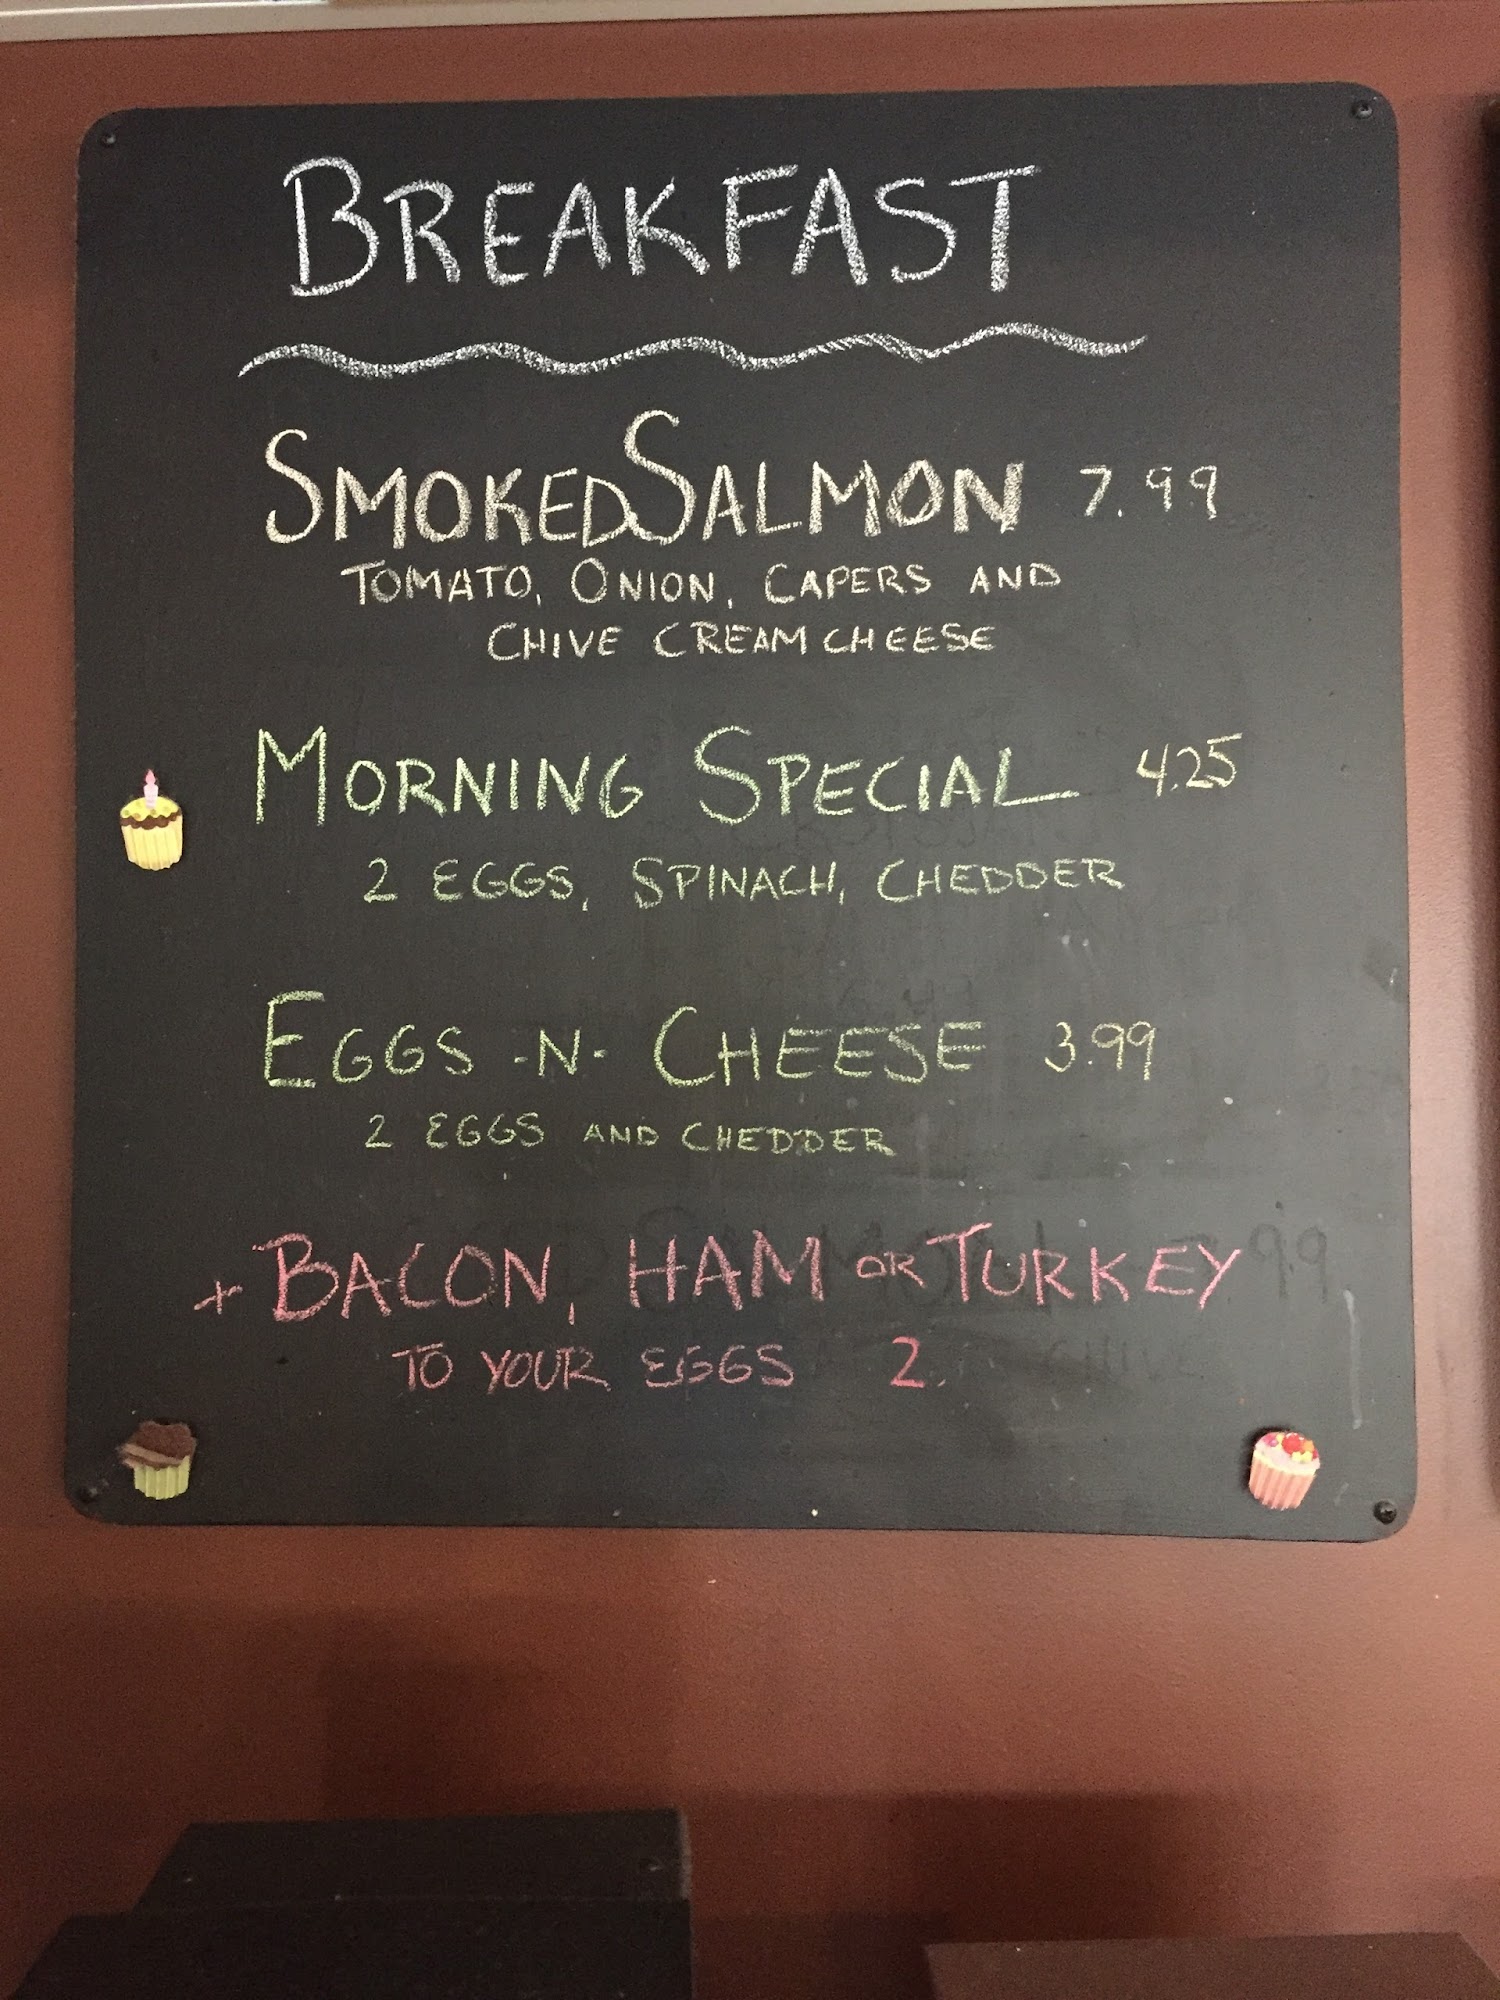 BREAKFAST
SMOKED SALMON 7.99
TOMATO, ONION, CAPERS AND
CHIVE CREAM CHEESE
MORNING SPECIAL 4.25
2 EGGS, SPINACH, CHEDDER
EGGS -N- CHEESE 3.99
2 EGGS AND CHEDDER
+ BACON, HAM OR TURKEY
TO YOUR EGGS 2.